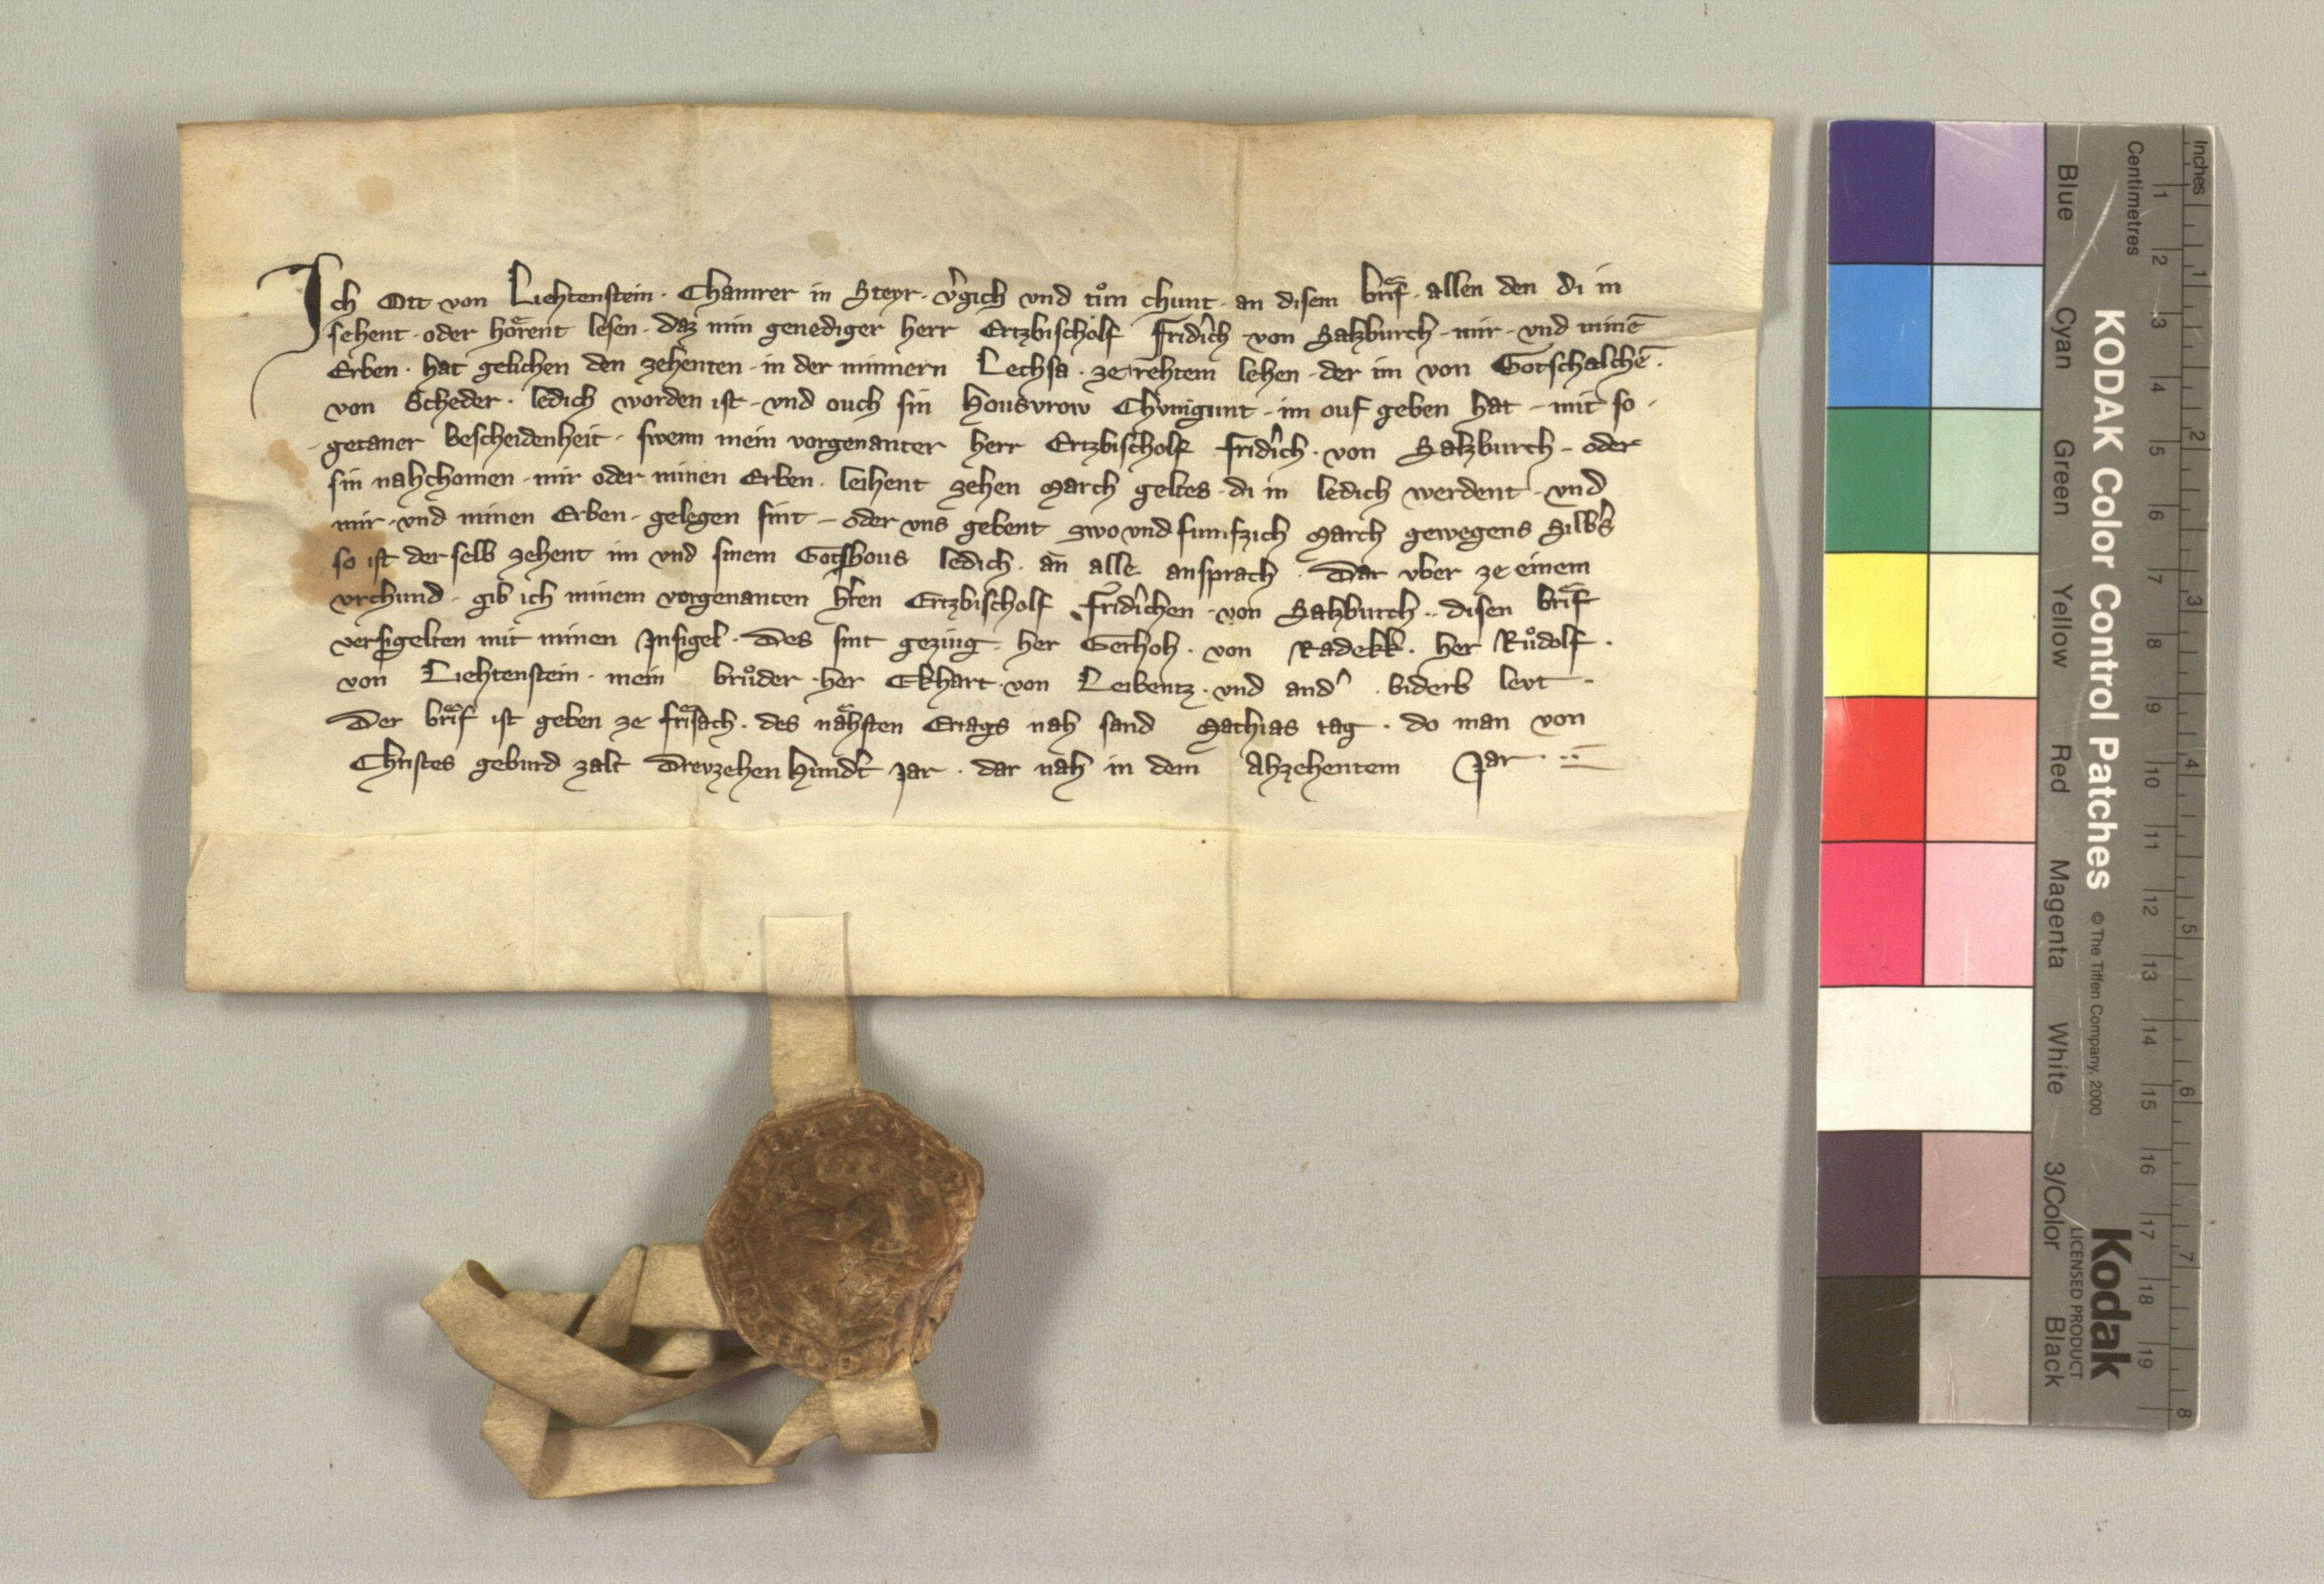 Ich Ott von Liehtenstein · Chamrer in Steyr · v͛gich vnd tuͦn chunt · an disem brief · allen den di in
sehent · oder hoͤrent lesen · daz min genediger herr Ertzbischolf Fridrich von Salzburch · mir · vnd minē
Erben · hat gelichen den zehenten · in der minnern Lechsa · ze rehtem lehen · der im von Gotschalchē ·
von Scheder · ledich worden ist · vnd ouch sin Housvrow Chvnigunt · im ouf geben hat · mit so ·
getaner bescheidenheit · swenn mein vorgenanter herr Ertzbischolf Fridrich · von Salzburch · oder
sin nahchomen · mir oder minen Erben · leihent zehen March geltes · di in ledich werdent · vnd
mir · vnd minen Erben · gelegen sint · oder vns gebent zwo vnd fumfzich march gewegens Silb͛s
so ist der selb zehent im vnd sinem Gotshous ledich · an alle ansprach · Dar vber ze einem
vrchund · gib ich minem vorgenanten h͛ren Ertzbischolf Fridrichen · von Salzburch · disen brief
versigelten mit minen Insigel · Des sint gezing · her Gerhoh · von Radekk · her Ruͦdolf ·
von Liehtenstein · mein bruͦder · her Ekhart · von Leibentz · vnd and͛ · biderb levt ·
Der brief ist geben ze frisach · des naͤhsten Eritags nah sand Mathias tag · do man von
Christes geburd zalt Drevzehen Hund͛t jar · dar nah in dem Ahzehentem Jar
KODAK Color Control Patches © The Tiffen Company, 2000 Kodak LICENSED PRODUCT
Blue Cyan Green Yellow Red Magenta White 3/Color Black
Centimetres 1 2 3 4 5 6 7 8 9 10 11 12 13 14 15 16 17 18 19
Inches 1 2 3 4 5 6 7 8